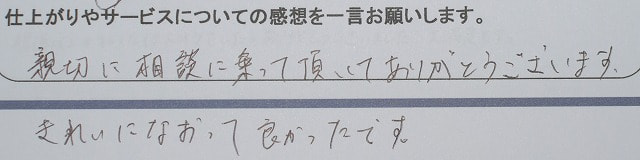 仕上がりやサービスについての感想を一言お願いします。
親切に相談に乗って頂いてありがとうございます。
きれいになおって良かったです。